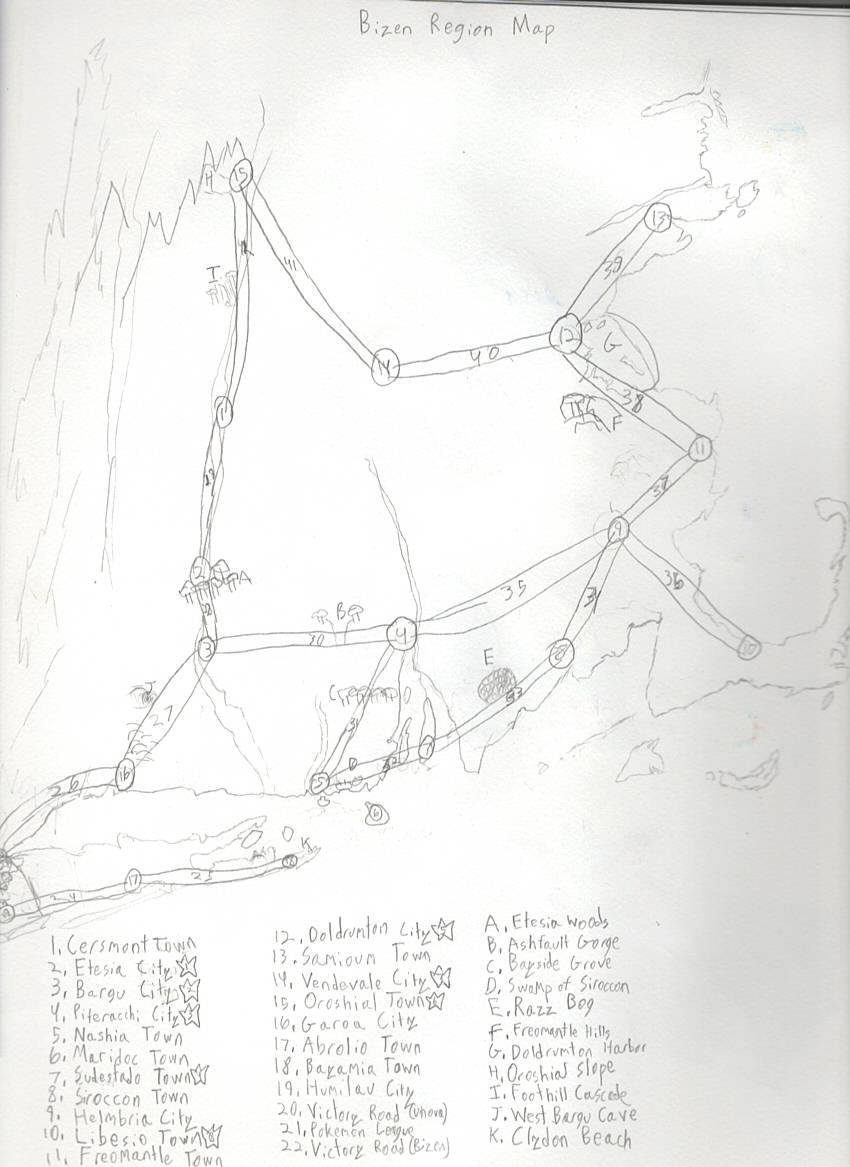 Bizen Region Map
H
15
13
I
41
39
12
G
40
14
38
F
1
11
19
37
9
2
A
35
36
B
4
3
30
10
E
8
C
27
33
7
D
16
5
26
6
K
17
25
24
1. Cersmont Town
2. Etesia City
3. Bargu City
4. Piteracchi City
5. Nashia Town
6. Maridoc Town
7. Sudestado Town
8. Siroccon Town
9. Helmbria City
10. Libesio Town
11. Freomantle Town
12. Doldrumton City
13. Samioum Town
14. Vendevale City
15. Oroshial Town
16. Garoa City
17. Abrolio Town
18. Bayamia Town
19. Humilau City
20. Victory Road (Unova)
21. Pokemon League
22. Victory Road (Bizen)
A. Etesia Woods
B. Ashfault Gorge
C. Bayside Grove
D. Swamp of Siroccon
E. Razz Bog
F. Freomantle Hills
G. Doldrumton Harbor
H. Oroshial Slope
I. Foothill Cascade
J. West Bargu Cave
K. Clydon Beach